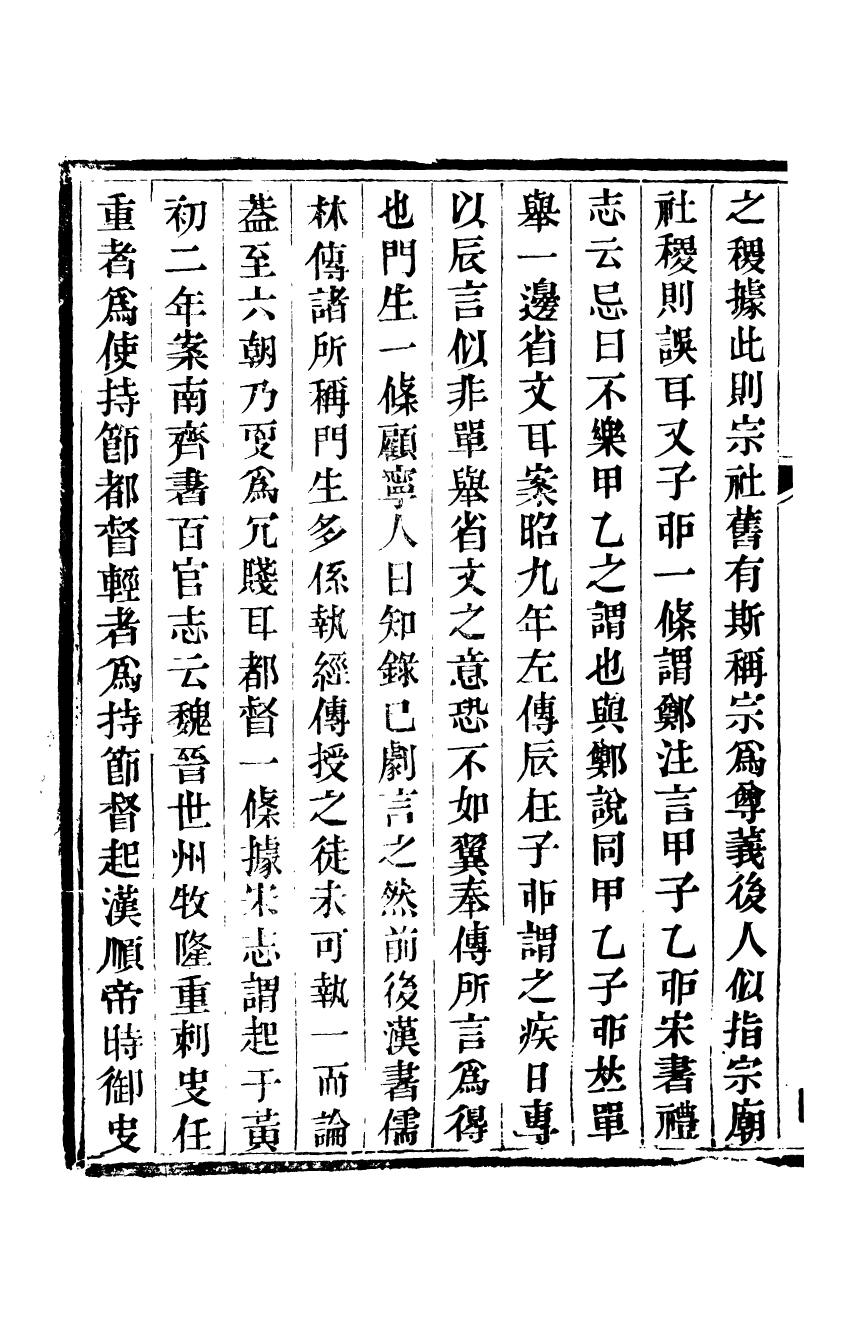 之稷據此則宗社舊有斯稱宗爲尊義後人似指宗廟
社稷則誤耳又子卯一條謂鄭注言甲子乙卯宋書禮
志云忌日不樂甲乙之謂也與鄭說同甲乙子卯並單
舉一邊省文耳案昭九年左傳辰在子卯謂之疾日專
以辰言似非單舉省文之意恐不如翼奉傳所言爲得
也門生一條顧寧人日知錄已劇言之然前後漢書儒
林傳諸所稱門生多係執經傳授之徒未可執一而論
葢至六朝乃更爲冗賤耳都督一條據宋志謂起于黃
初二年案南齊書百官志云魏晉世州牧隆重刺史任
重者爲使持節都督輕者爲持節督起漢順帝時御史